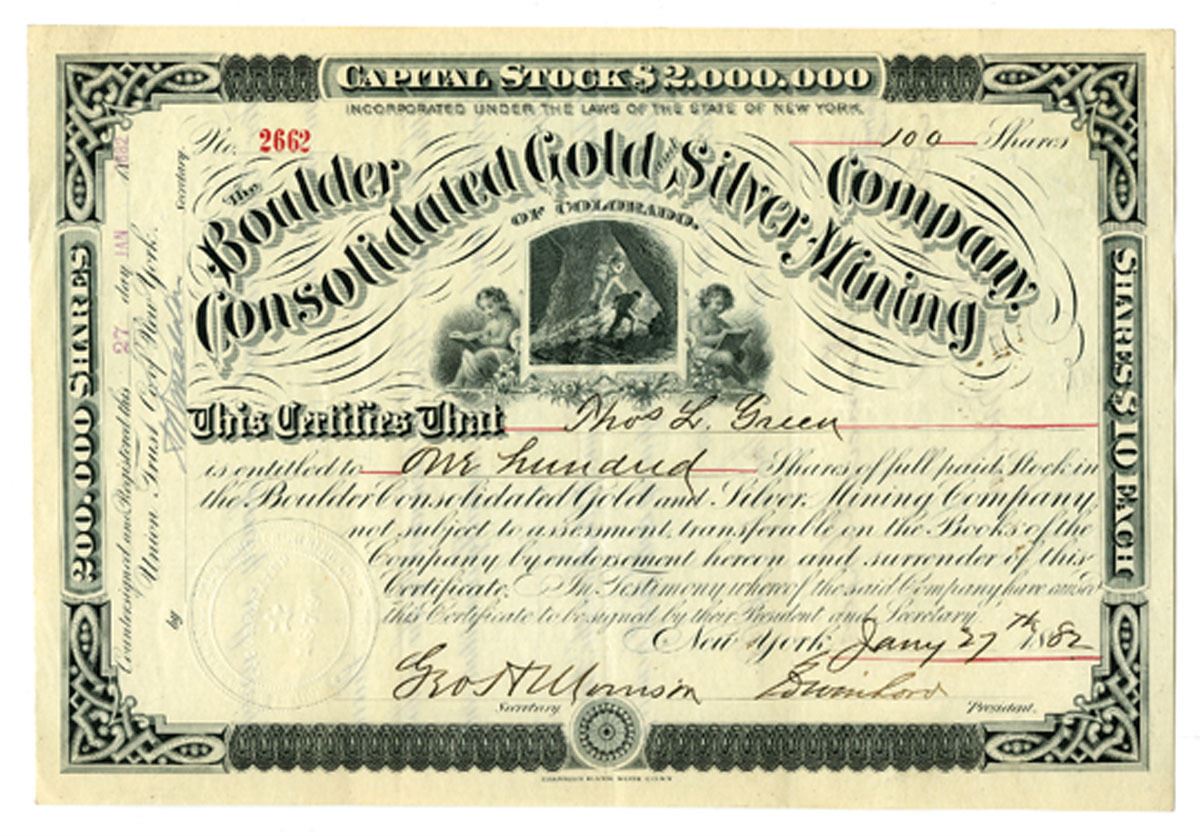 CAPITAL STOCK $2.000.000
INCORPORATED UNDER THE LAWS OF THE STATE OF NEW YORK.
No. 2662
100 Shares
The Boulder Consolidated Gold and Silver Mining Company.
OF COLORADO.
This Certifies That Thos L. Green
is entitled to One hundred Shares of full paid Stock in
the Boulder Consolidated Gold and Silver Mining Company,
not subject to assessment, transferable on the Books of the
Company by endorsement hereon and surrender of this
Certificate. In Testimony whereof the said Company have caused
this Certificate to be signed by their President and Secretary
New York, Jany 27th 1882
Geo H Morrison
Secretary
President.
200.000 SHARES
SHARES $10 EACH
Countersigned and Registered this 27 day JAN 1882
Union Trust Co. of New York.
by
Secretary.